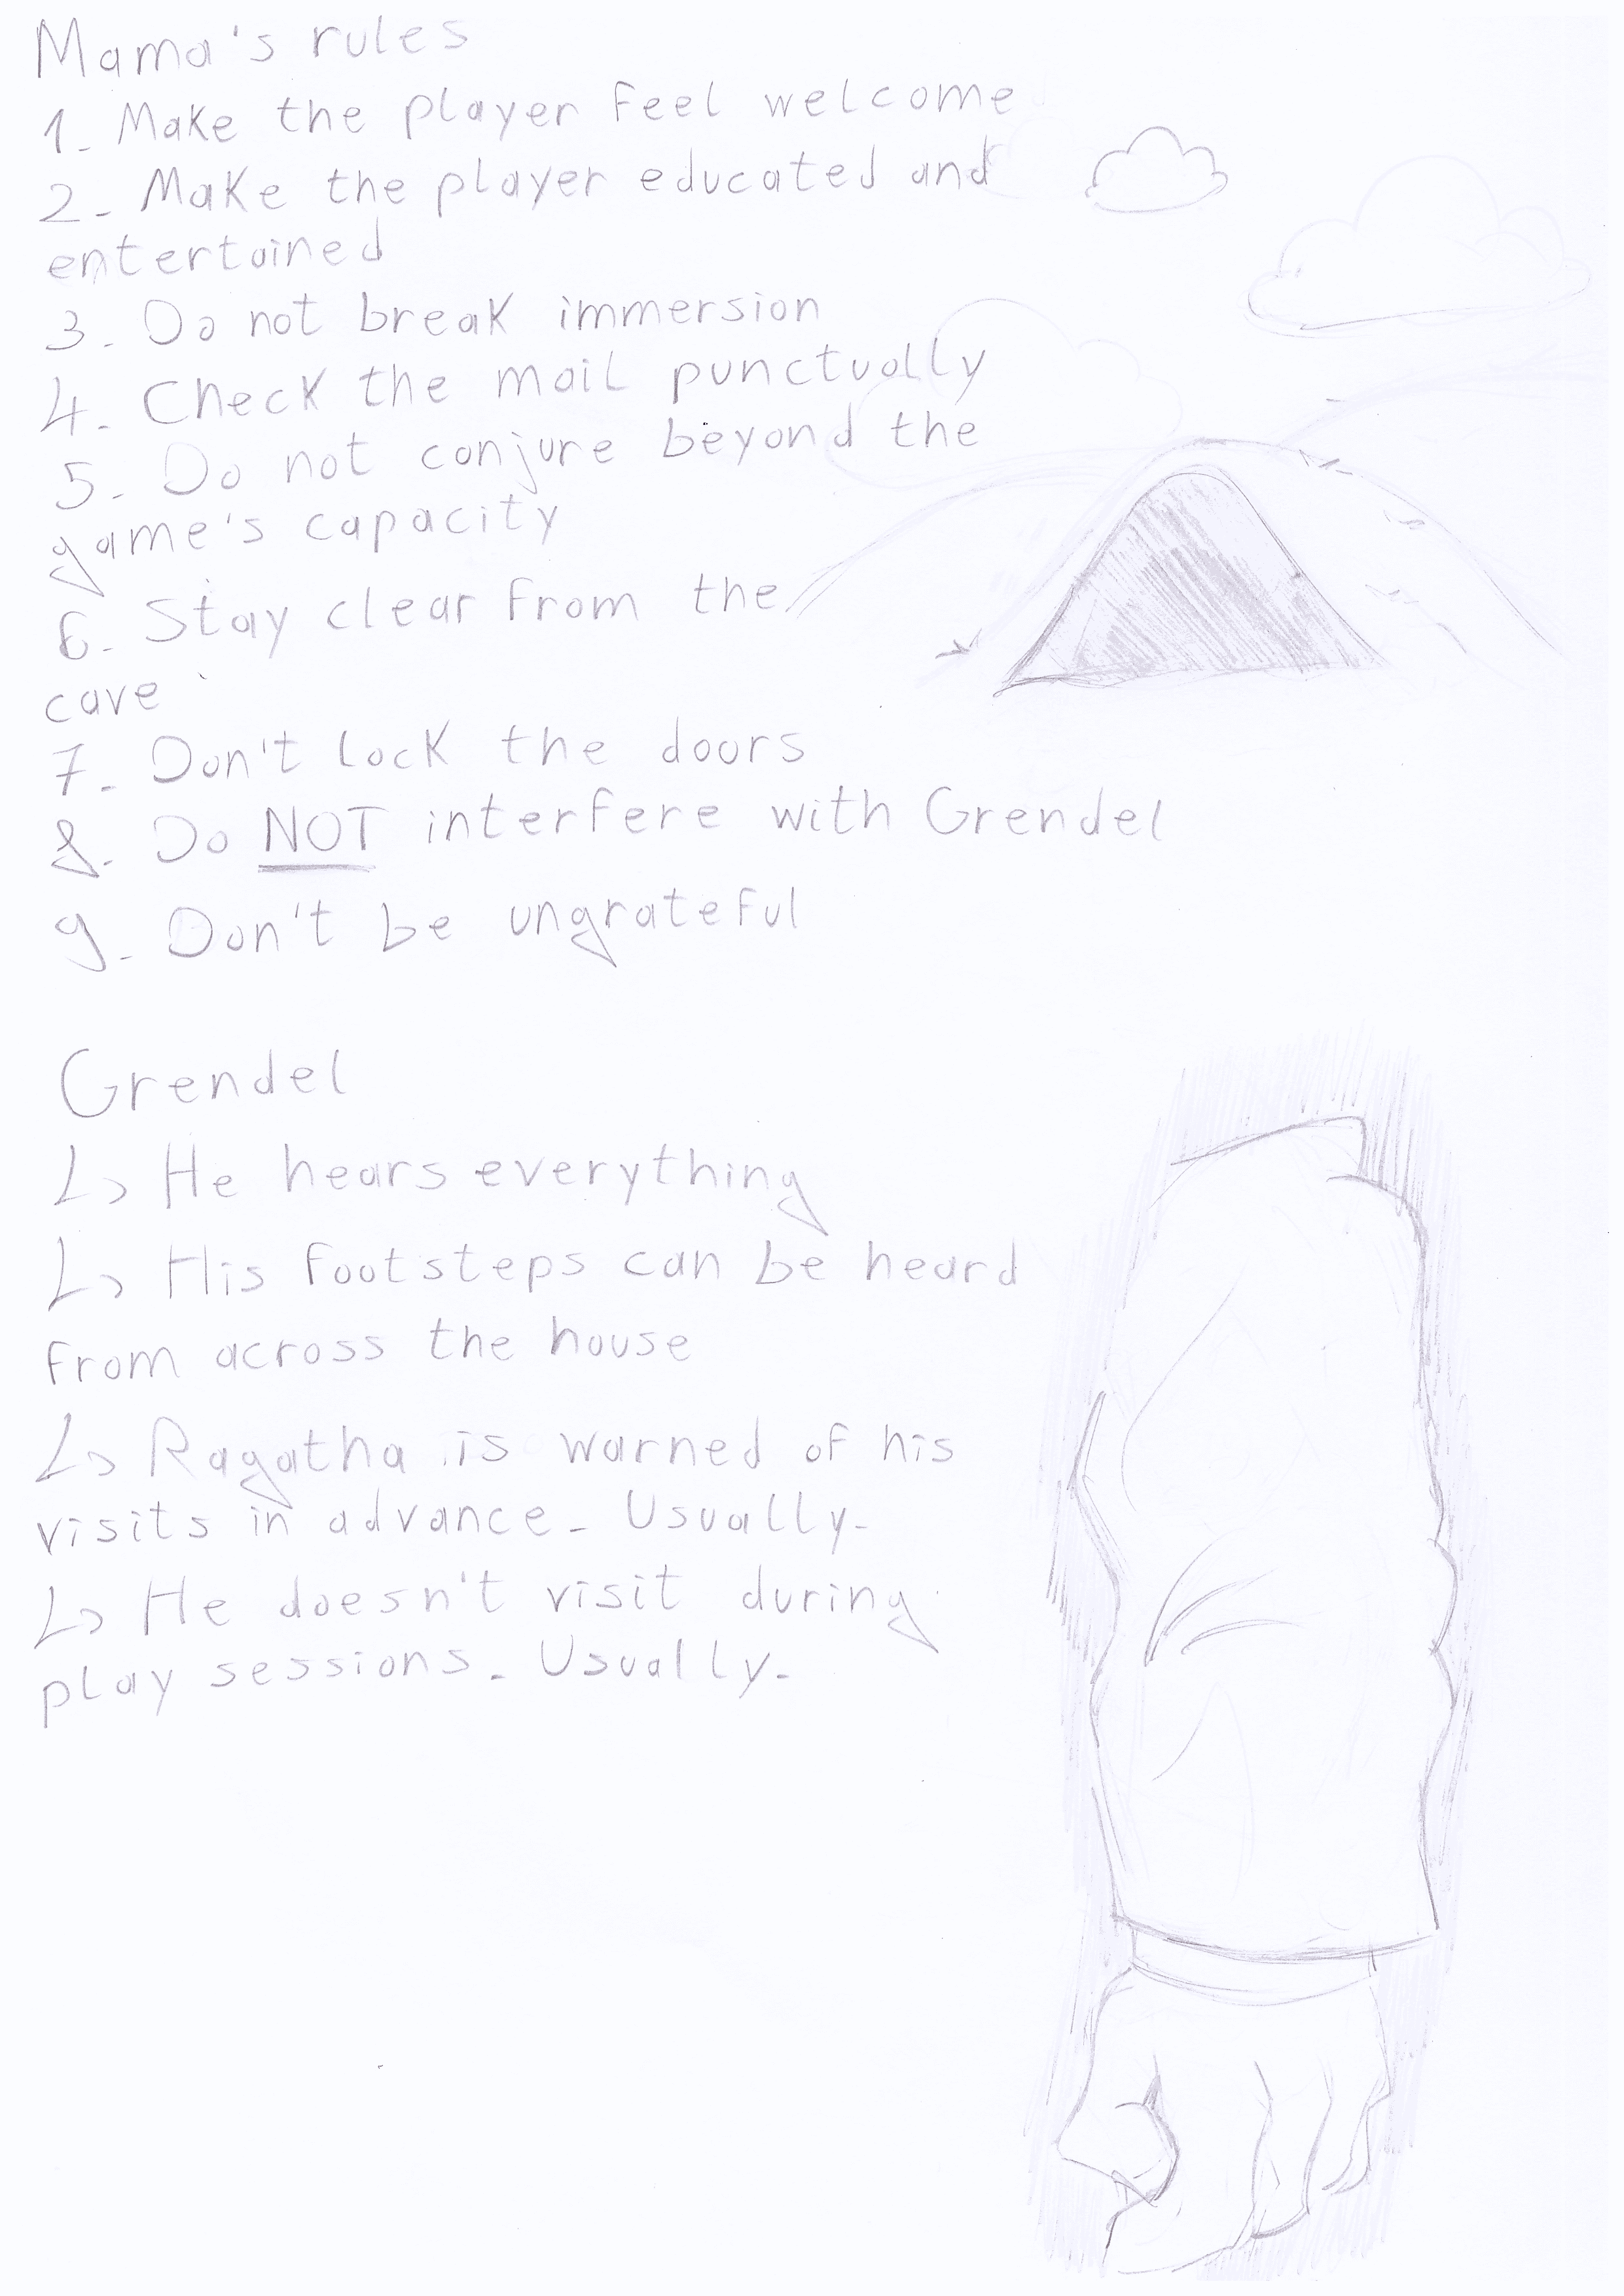 Mama's rules
1. Make the player feel welcome
2. Make the player educated and
entertained
3. Do not break immersion
4. Check the mail punctually
5. Do not conjure beyond the
game's capacity
6. Stay clear from the
cave
7. Don't lock the doors
8. Do NOT interfere with Grendel
9. Don't be ungrateful
Grendel
↳ He hears everything
↳ His footsteps can be heard
from across the house
↳ Ragatha is warned of his
visits in advance. Usually.
↳ He doesn't visit during
play sessions. Usually.